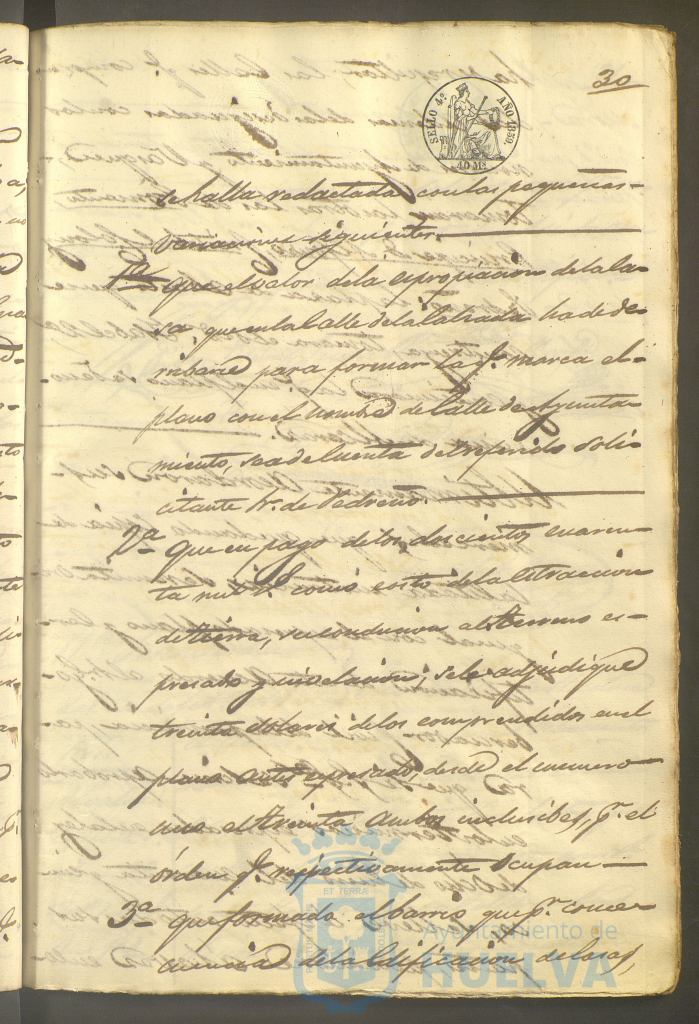 30
SELLO 4º AÑO 1859.
40 Ms
se halla redactada con las pequeñas
variaciones siguientes.
1ª Que el valor de la expropiacion de la ca-
sa, que en la Calle de la Calzada ha de de-
rribarse para formar la q.e marca el
plano con el nombre de Calle de Ayunta-
miento, sea de cuenta del referido Soli-
citante Sr. de Pedreño.
2ª Que en pago de los doscientos cuaren-
ta mil rs como costo de la estraccion
de tierra, su conduccion al terreno es-
presado y nivelacion; se le adjudique
treinta solares de los comprendidos en el
plano antes espresado, desde el numero
uno al treinta ambos inclusibes, p.r el
órden q.e respectivamente ocupan
3ª que formado el barrio que p.r conse-
cuencia de la edificacion de casas,
ET TERRA
Ayuntamiento de
HUELVA